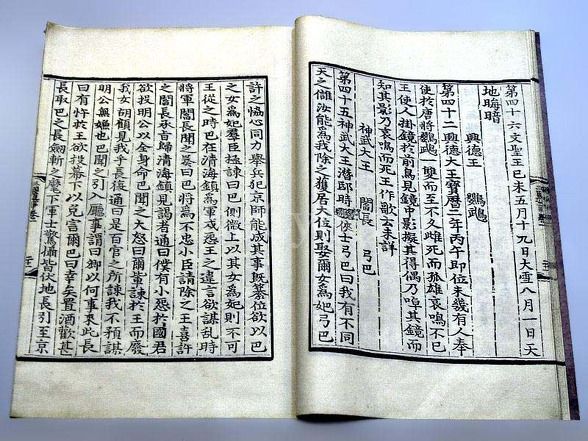 第四十六文聖王己未五月十九日大雪八月一日天
地晦暗
興德王 鸚鵡
第四十二興德大王寶曆二年丙午即位未幾有人奉
使於唐將鸚鵡一雙而至不久雌死而孤雄哀鳴不已
王使人掛鏡於前鳥見鏡中影擬其得偶乃啅其鏡而
知其影乃哀鳴而死王作歌云未詳
神武大王 閻長 弓巴
第四十五神武大王潛邸時俠士弓巴曰我有不同
天之讎汝能爲我除之獲居大位則娶爾女爲妃弓巴
許之恊心同力舉兵犯京師能成其事既簒位欲以巴
之女爲妃羣臣極諫曰巴側微上以其女爲妃則不可
王從之時巴在清海鎮爲軍戍怨王之違言欲謀亂時
將軍閻長聞之奏曰巴將爲不忠小臣請除之王喜許
之閻長承旨歸清海鎮見謁者通曰僕有小怨於國君
欲投明公以全身命巴聞之大怒曰爾輩諫於王而廢
我女胡顧見我乎長復通曰是百官之所諫我不預謀
明公無嫌也巴聞之引入廳事謂曰卿以何事來此長
曰有忤於王欲投幕下以免害爾巴曰幸矣置酒歡甚
長取巴之長劒斬之麾下軍士驚懾皆伏地長引至京